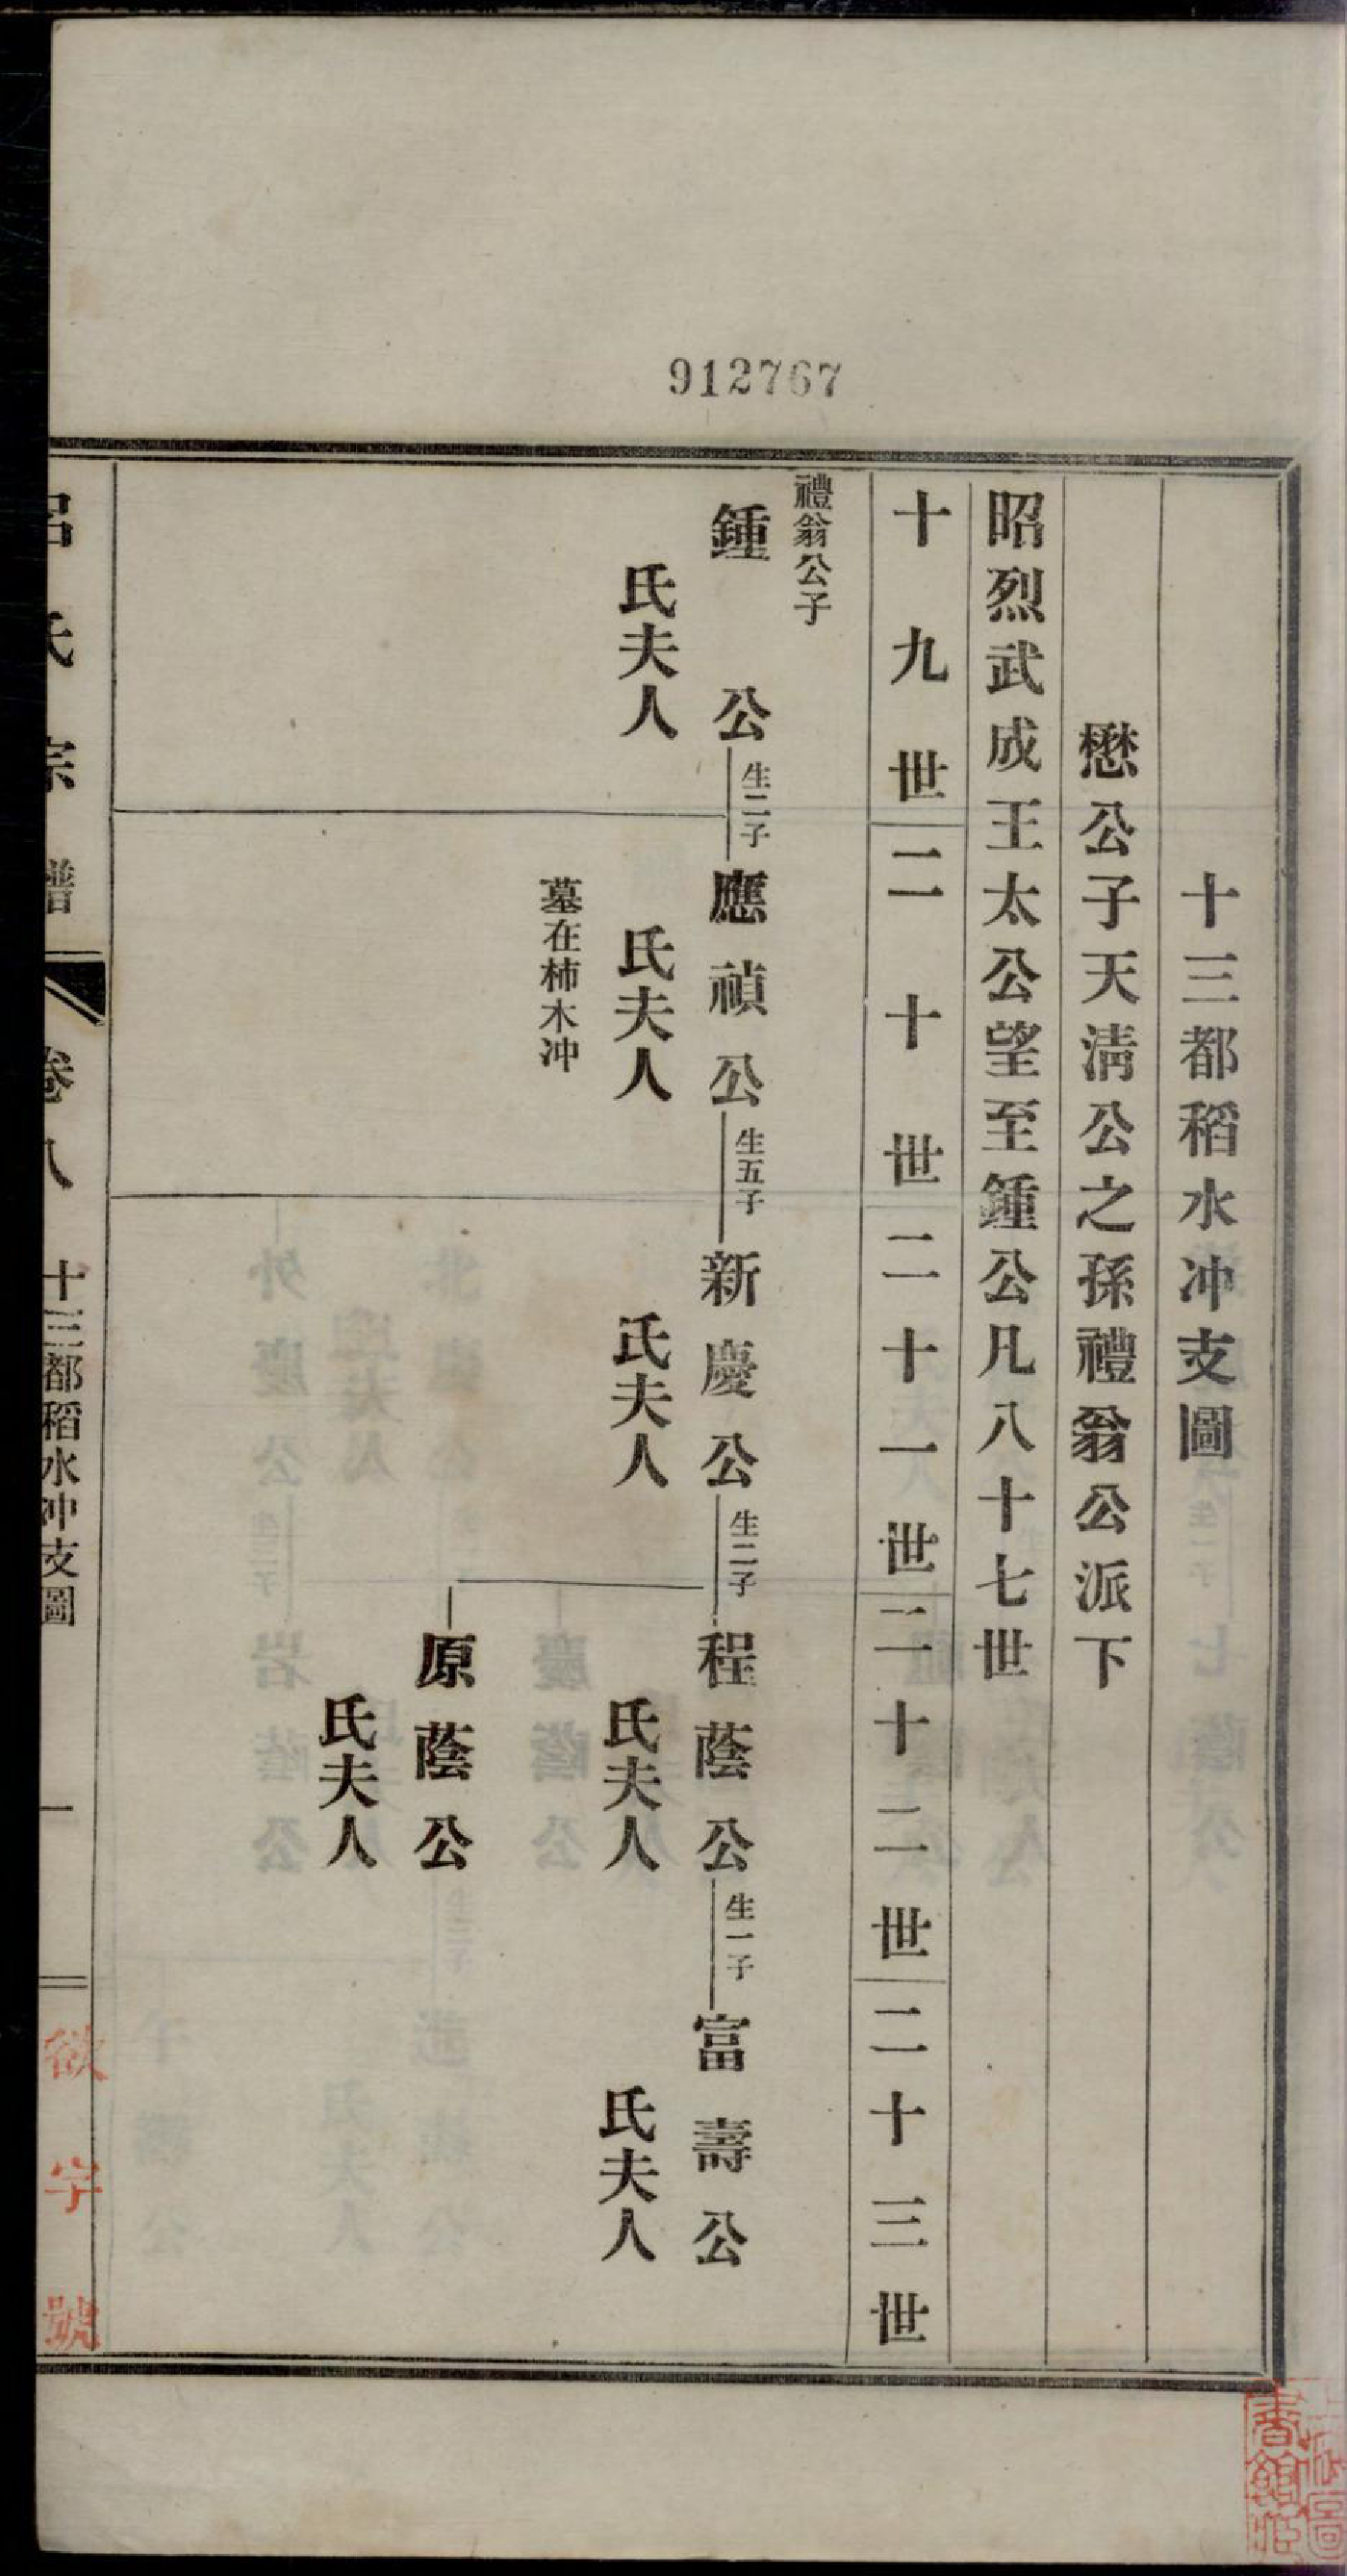 912767
十三都稻水冲支圖
懋公子天淸公之孫禮翁公派下
昭烈武成王太公望至鍾公凡八十七世
十九世
二十世
二十一世
二十二世
二十三世
禮翁公子
鍾公
生二子
應禎公
生五子
新慶公
生二子
程蔭公
生一子
富壽公
氏夫人
氏夫人
氏夫人
氏夫人
氏夫人
墓在柿木冲
原蔭公
氏夫人
呂氏宗譜
卷八
十三都稻水冲支圖
一
欲字號